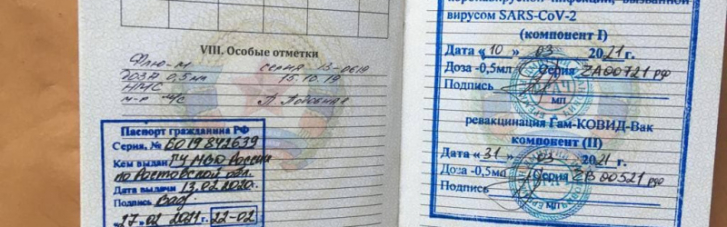 VIII. Особые отметки
Флю-М серия 13-0619
доза 0,5 мл 15.10.19
Паспорт гражданина РФ
Серия, № 6019 842639
Кем выдан ГУ МВД России
по Ростовской обл.
Дата выдачи 13.02.2020.
Подпись
27 02 2021 г. 22-02
вирусом SARS-CoV-2
(компонент I)
Дата «10» 03 2021 г.
Доза -0,5мл серия ZA00721 РФ
Подпись
МП
ревакцинация Гам-КОВИД-Вак
компонент (II)
Дата «31» 03 2021 г.
Доза -0,5мл серия ZB00521 РФ
Подпись
МП